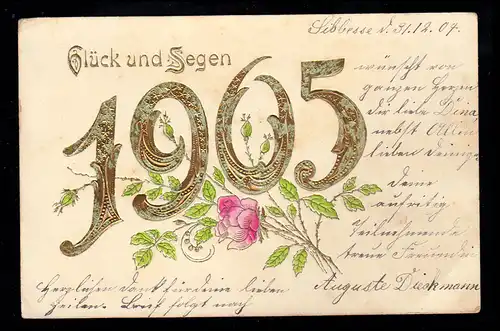 Sibbesse d. 31.12.04.
Glück und Segen
1905
wünscht von
ganzen Herzen
der liebe Dina
nebst Allen
lieben Deinigen
Deine
aufrichtig
Teilnehmende
treue Freundin
Auguste Dieckmann
Herzlichen Dank für deine lieben
Zeilen. Brief folgt nach